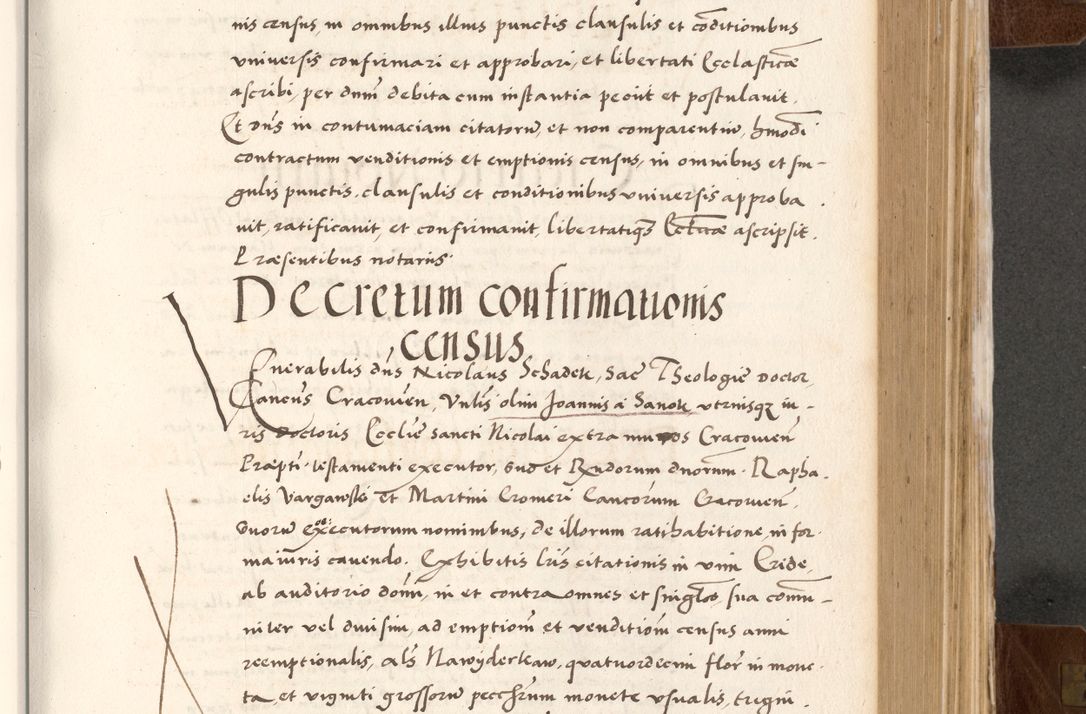 nis census, in omnibus illius punctis clausulis et cõditionibus
universis confirmari et approbari, et libertati Ecclasticæ
ascribi, per dnm̃ debita cum instantia peciit et postulavit.
Et dñs in contumaciam citatorũ, et non comparentiũ, hmõdi
contractum venditionis et emptionis census, in omnibus et sin-
gulis punctis, clausulis et conditionibus universis approba
vit, ratificavit, et confirmavit, libertatiqȝ Ecclticæ ascripsit.
Præsentibus notariis
Decretum confirmationis
census
Venerabilis dñs Nicolaus Schadek, Sac̃ Theologiẽ Doctor,
Canc̃us Cracovieñ, Vnlis̃ olim Joannis à Sanok utriusqȝ iu-
ris Doctoris Eccliẽ sancti Nicolai extra muros Cracovieñ
Præpti testamenti executor, suo et Rndorum dnorum̃ Rapha
elis Vargawski et Martini Cromeri Canc̃orum Cracovieñ,
Suorũ coexecutorum nominibus, de illorum ratihabitione, in for
ma iuris cavendo. Exhibitis lrĩs citationis in vim Cride,
ab auditorio domĩ, in et contra omnes et singlos̃, sua comũ-
niter vel divisim, ad emptionẽ et venditionẽ census anni
reemptionalis, als̃ Nawyderkaw, quatuordecim flor̃ in mone
ta, et viginti grossorũ pecchr̃um monete usualis, trigin